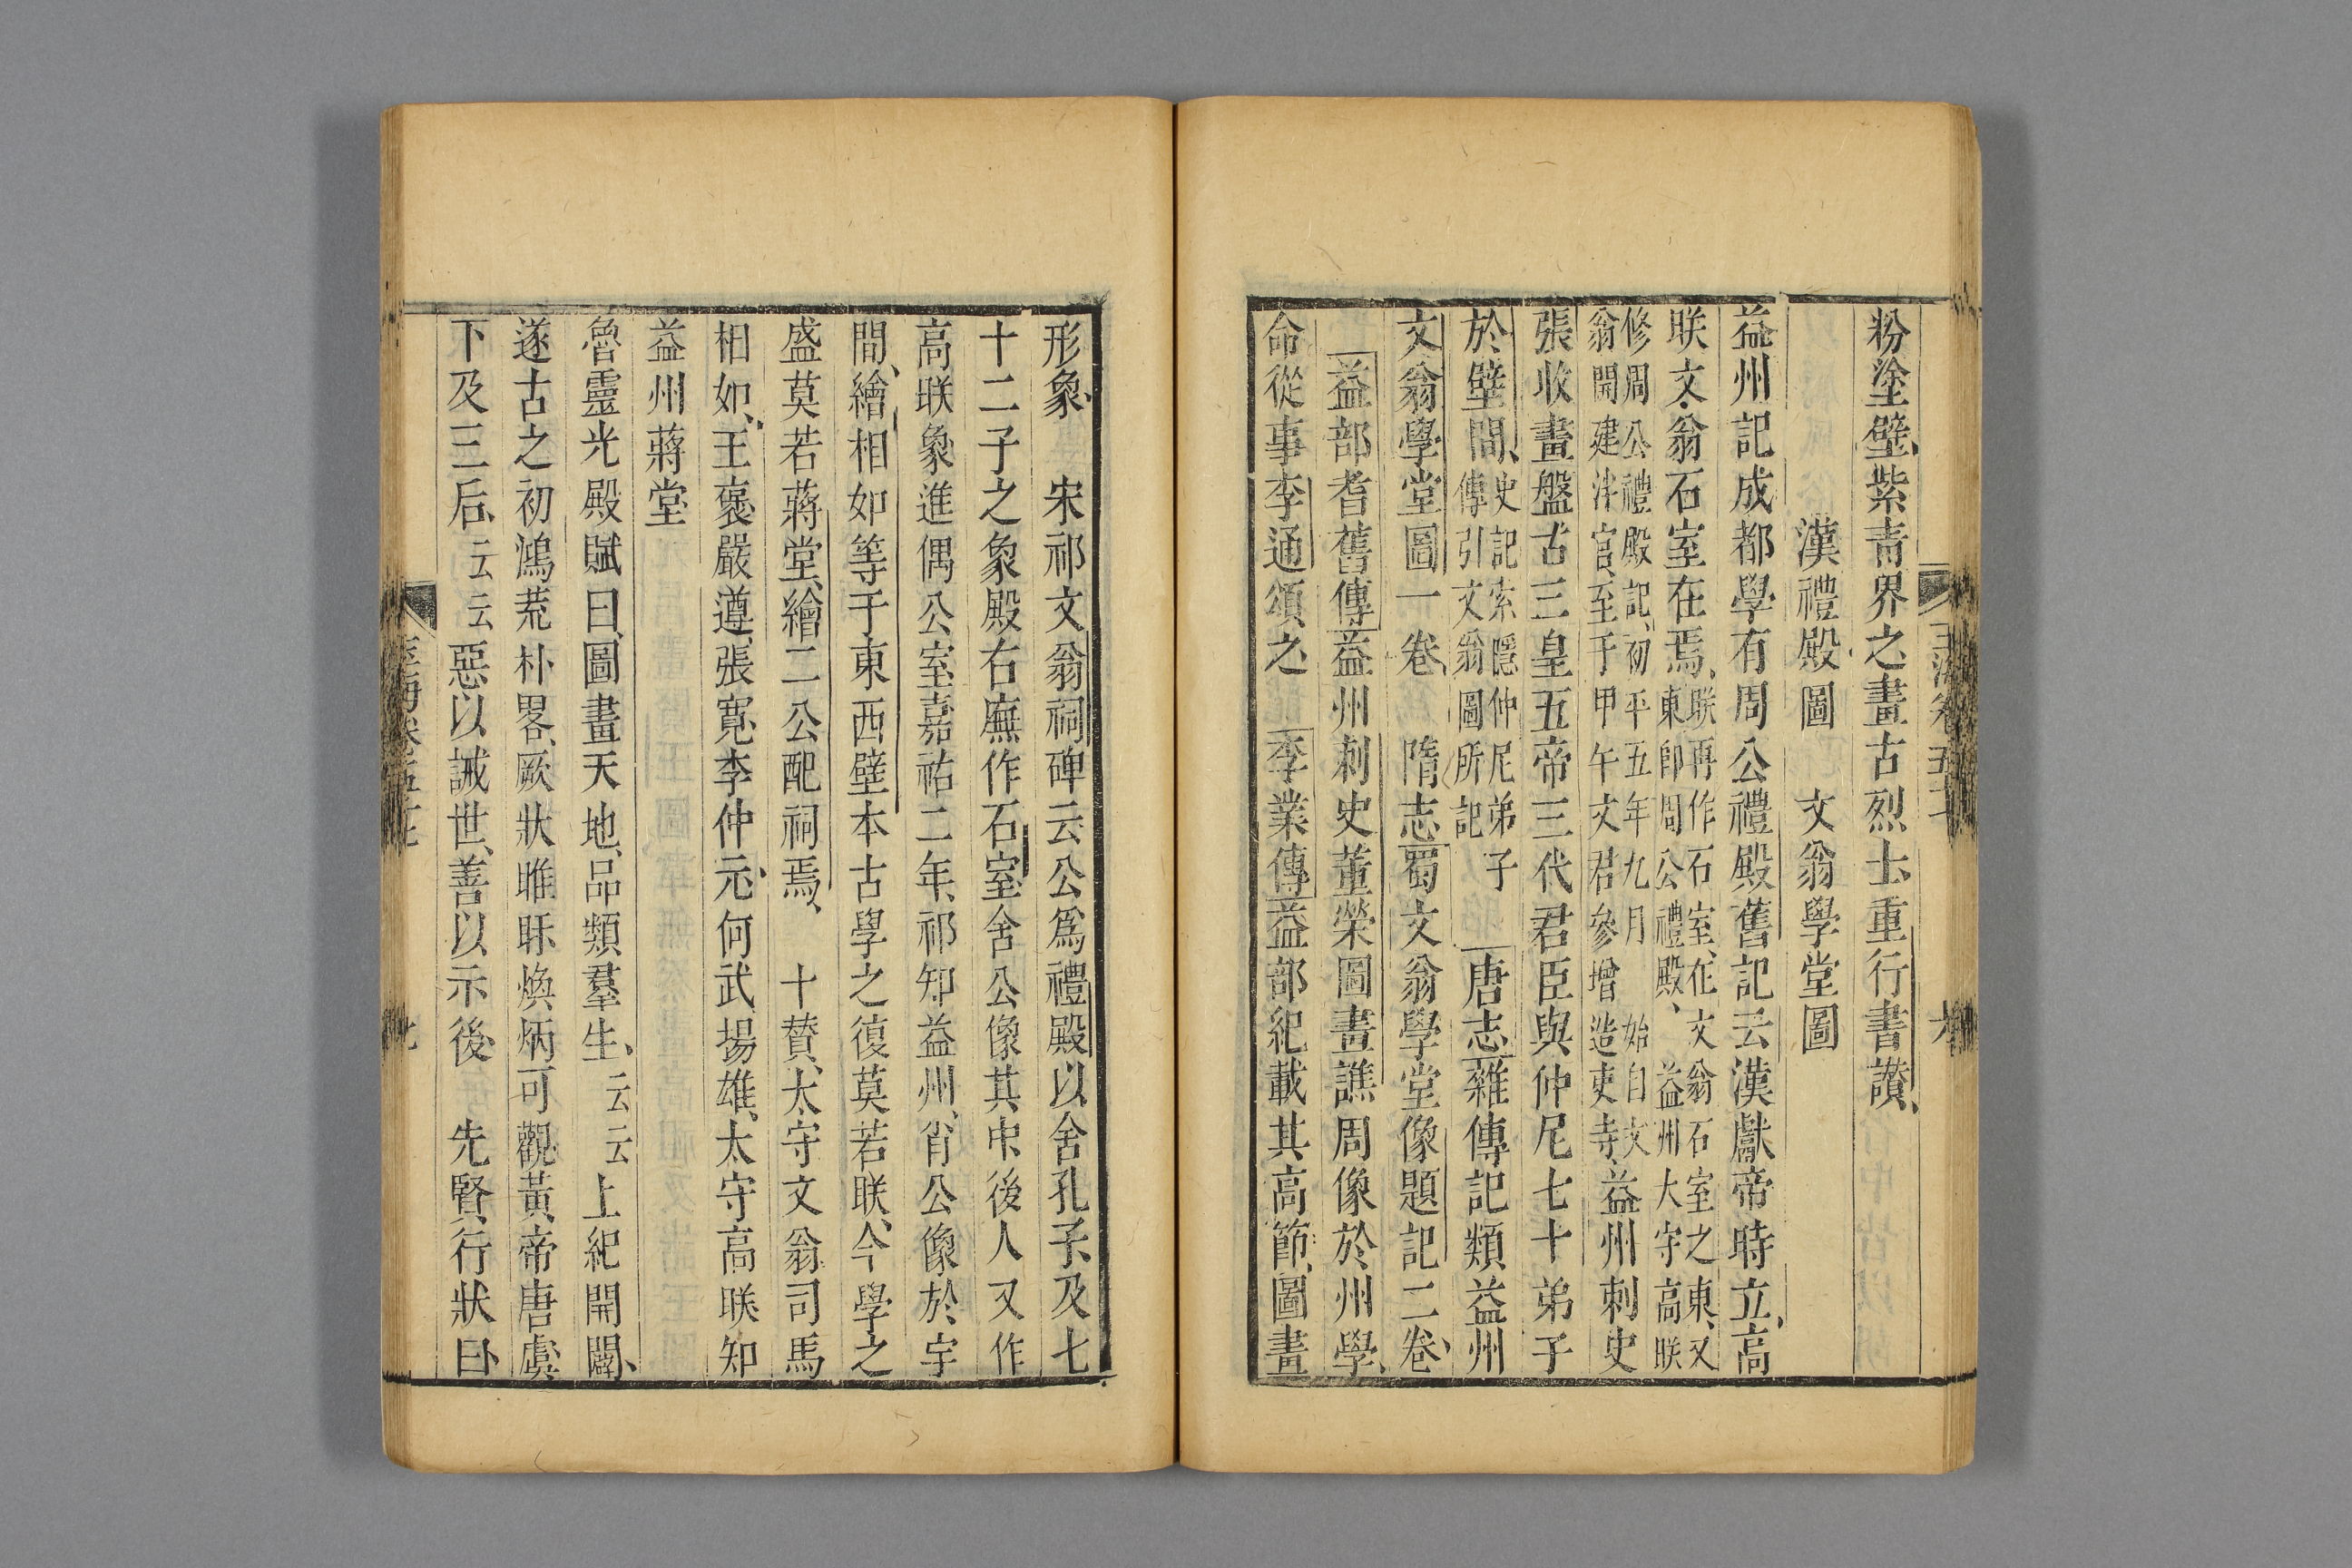 粉塗壁、紫青界之、畫古烈士、重行書讃、
漢禮殿圖 文翁學堂圖
益州記成都學有周公禮殿舊記云漢獻帝時立、高
䀕文翁石室在焉、䀕再作石室、在文翁石室之東、又東卽周公禮殿、益州大守高䀕
修周公禮殿記、初平五年九月始自文翁開建泮宫、至于甲午文君參增造吏寺、益州刺史
張收畫盤古三皇五帝三代君臣與仲尼七十弟子
於壁間、史記索隱仲尼弟子傳引文翁圖所記 唐志雜傳記類益州
文翁學堂圖一卷 隋志蜀文翁學堂像題記二卷、
益部耆舊傳益州刺史董榮圖畫譙周像於州學、
命從事李通頌之 李業傳益部紀載其高節、圖畫
形象 宋祁文翁祠碑云公爲禮殿以舍孔子、及七
十二子之象殿右廡作石室、舍公像其中、後人又作
高䀕象進偶公室、嘉祐二年、祁知益州、肖公像於宇
間、繪相如等于東西壁、本古學之復莫若䀕、今學之
盛莫若蔣堂、繪二公配祠焉、 十贊、太守文翁司馬
相如、王褒嚴遵、張寛、李仲元、何武揚雄、太守高䀕知
益州蔣堂
魯靈光殿賦曰、圖畫天地、品類羣生、云云上紀開闢、
遂古之初鴻荒朴畧、厥狀睢盱煥炳可觀、黃帝唐虞、
下及三后、云云惡以誡世、善以示後 先賢行狀曰